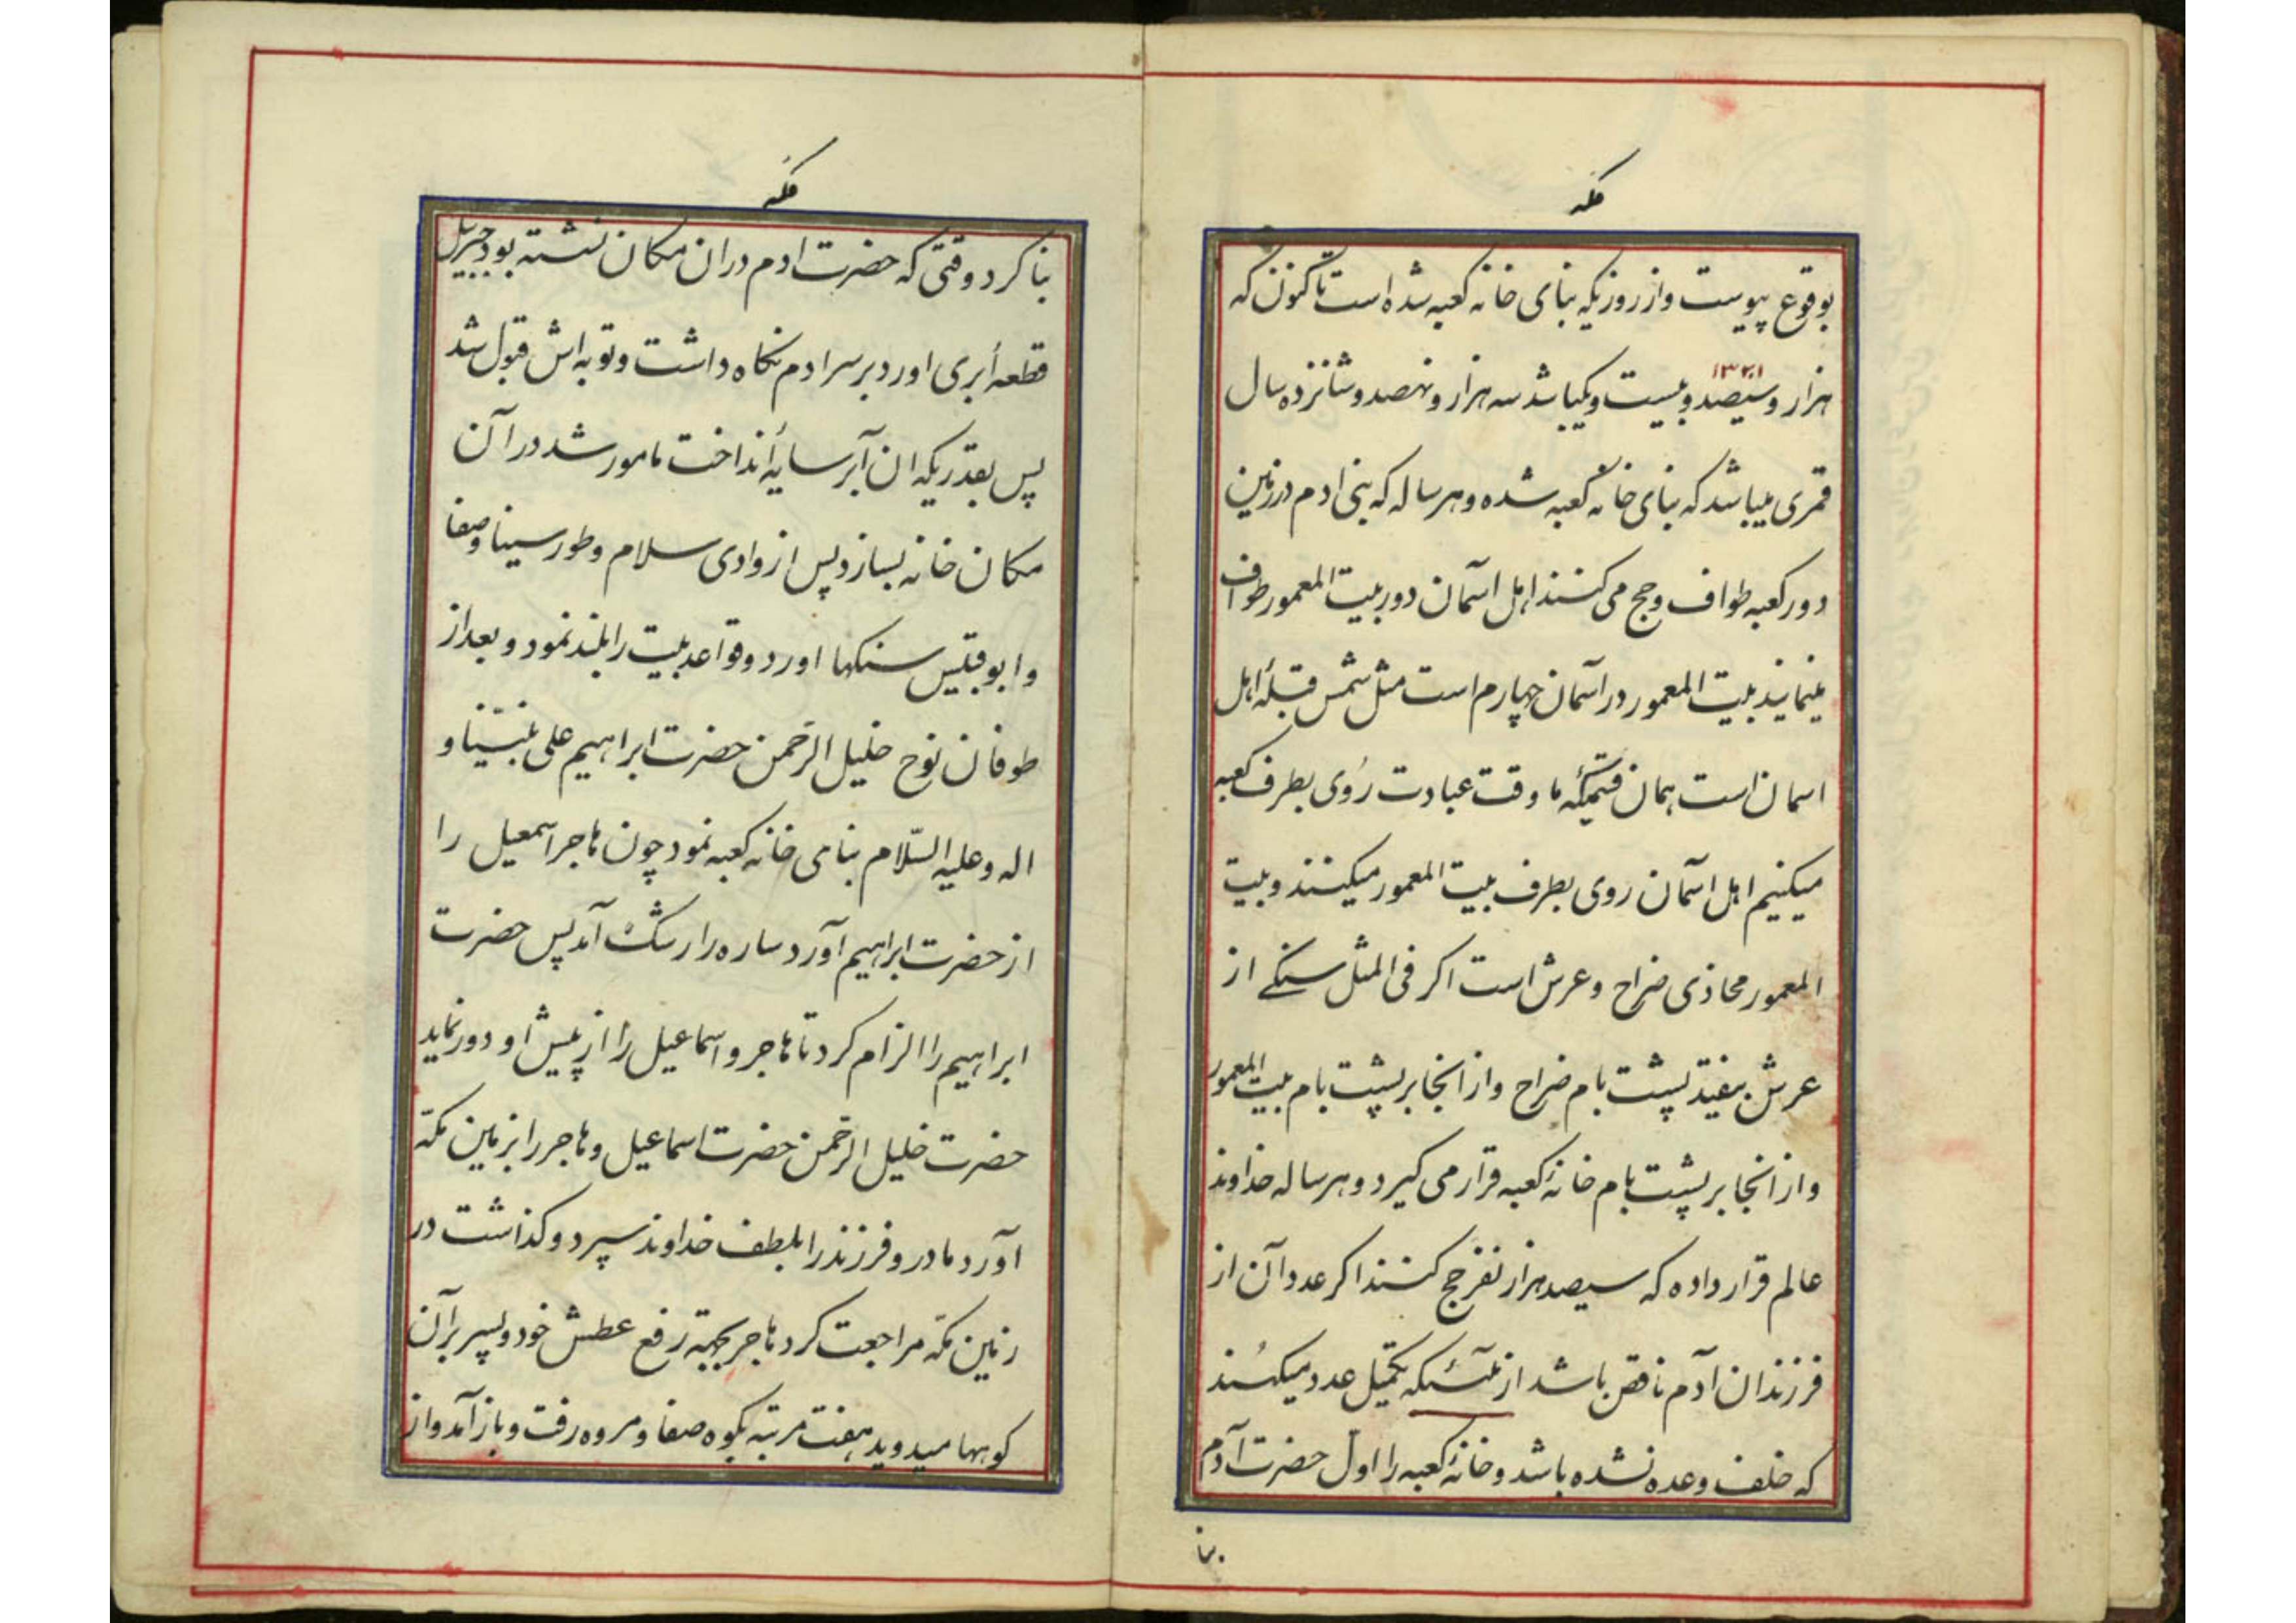 مکه
بوقوع پیوست و از روزیکه بنای خانه کعبه شده است تا کنون که
۱۳۲۱
هزار و سیصد و بیست و یکمیباشد سه هزار و نهصد و شانزده سال
قمری میباشد که بنای خانه کعبه شده و هر ساله که بنی ادم در زمین
دور کعبه طواف و حج می کنند اهل اسمان دور بیت المعمور طواف
مینمایند بیت المعمور در آسمان چهارم است مثل شمس قبلهٔ اهل
اسمان است همان قسمیکه ما وقت عبادت روی بطرف کعبه
میکنیم اهل اسمان روی بطرف بیت المعمور میکنند و بیت
المعمور محاذی ضراح و عرش است اکر فی المثل سنکی از
عرش بیفتد پشت بام ضراح و از انجا بر پشت بام بیت المعمور
و از انجا بر پشت بام خانهٔ کعبه قرار می کیرد و هر ساله خداوند
عالم قرار داده که سیصد هزار نفر حج کنند اکر عدد آن از
فرزندان آدم ناقص باشد از ملآئکه تکمیل عدد میکنند
که خلف وعده نشده باشد و خانهٔ کعبه را اول حضرت آدم
بنا
مکه
بنا کرد وقتی که حضرت ادم در ان مکان نشسته بود جبرییل
قطعه ابری اورد بر سر ادم نکاه داشت و توبه اش قبول شد
پس بقدریکه ان ابر سایه انداخت مامور شد در آن
مکان خانه بسازد پس از وادی سلام و طور سینا و صفا
و ابو قبیس سنکها اورد و قواعد بیت را بلند نمود و بعد از
طوفان نوح خلیل الرحمن حضرت ابراهیم علی نبیّنا و
اله و علیه السّلام بنامی خانه کعبه نمود چون هاجر اسمعیل را
از حضرت ابراهیم آورد ساره را رشک آمد پس حضرت
ابراهیم را الزام کرد تا هاجر و اسماعیل را از پیش او دور نماید
حضرت خلیل الرحمن حضرت اسماعیل و هاجر را بزمین مکّه
آورد مادر و فرزند را بلطف خداوند سپرد و کذاشت در
زمین مکّه مراجعت کرد هاجر بجهة رفع عطش خود و پسر بر آن
کوهها میدوید هفت مرتبه بکوه صفا و مروه رفت و باز آمد و از